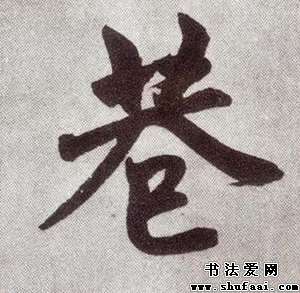 巷
书法爱网
www.shufaai.com